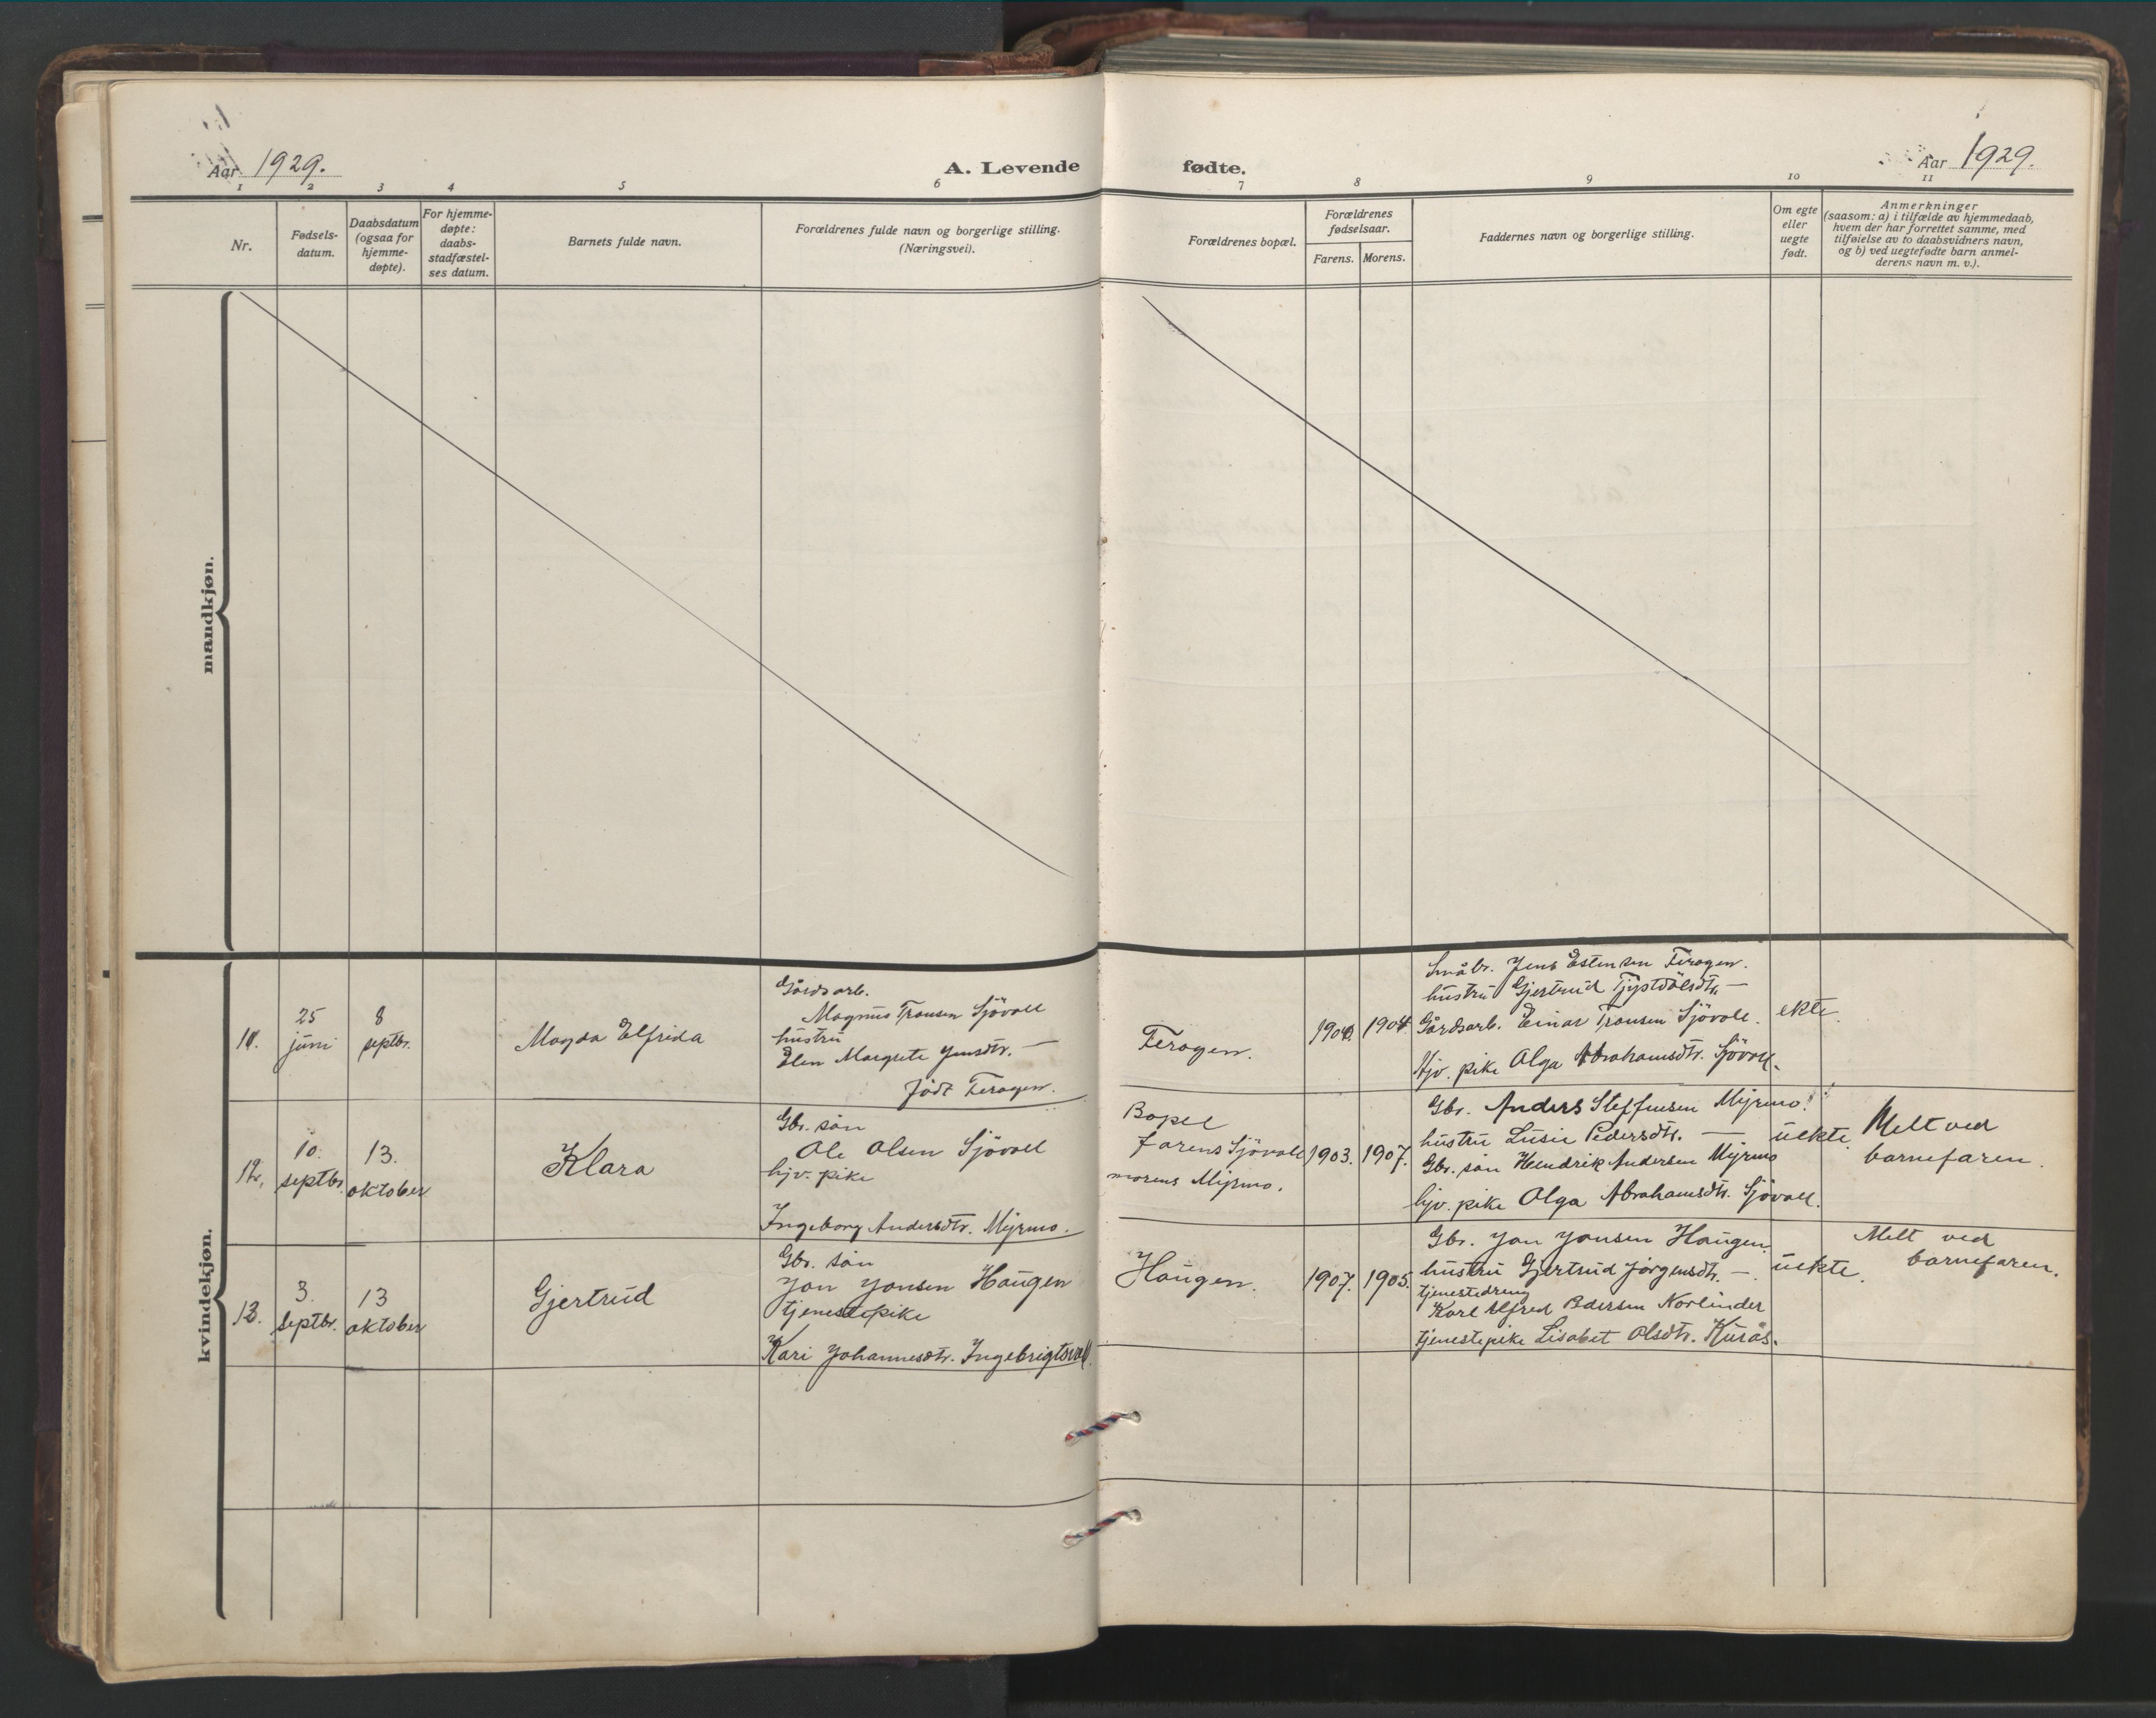 Aar 1929.
A. Levende fødte.
Aar 1929.
1 2 3 4 5 6 7 8 9 10 11
Nr.
Fødsels-
datum.
Daabsdatum
(ogsaa for
hjemme-
døpte).
For hjemme-
døpte:
daabs-
stadfæstel-
ses datum.
Barnets fulde navn.
Forældrenes fulde navn og borgerlige stilling.
(Næringsvei).
Forældrenes bopæl.
Forældrenes
fødselsaar.
Farens. Morens.
Faddernes navn og borgerlige stilling.
Om egte
eller
uegte
født.
Anmerkninger
(saasom: a) i tilfælde av hjemmedaab,
hvem der har forrettet samme, med
tilføielse av to daabsvidners navn,
og b) ved uegtefødte barn anmel-
derens navn m. v.).
mandkjøn.
kvindekjøn.
11.
25
juni
8
septbr.
Magda Elfrida
Gårdsarb.
Magnus Tronsen Sjövoll
hustru
Elen Margrete Jensdtr. —
födt Feragen.
Feragen.
1904.
Småbr. Jens Estensen Feragen.
hustru Gjertrud —
Gårdsarb. Einar Tronsen Sjövoll.
Hjv. pike Olga Abrahamsdtr. Sjövoll.
ekte.
12.
10.
septbr.
13.
oktober
Klara
Gbr. sön
Ole Olsen Sjövoll
hjv. pike
Ingeborg Andersdtr. Myrmo.
Bopel
farens Sjövoll
morens Myrmo.
1903.
1907.
Gbr. Anders Steffensen Myrmo.
hustru Lusie Pedersdtr. —
Gbr. sön Hendrik Andersen Myrmo
hjv. pike Olga Abrahamsdtr. Sjövoll.
uekte.
Melt ved
barnefaren.
13.
3.
septbr.
13
oktober
Gjertrud
Gbr. sön
Jon Jonsen Haugen
tjenestepike
Kari Johannesdtr. Ingebrigtsvoll.
Haugen.
1907.
1905.
Gbr. Jon Jonsen Haugen.
hustru Gjertrud Jörgensdtr. —
tjenestedreng
Karl Alfred Pedersen Norlinder
tjenestepike Lisabet Olsdtr. Kurås.
uekte.
Melt ved
barnefaren.